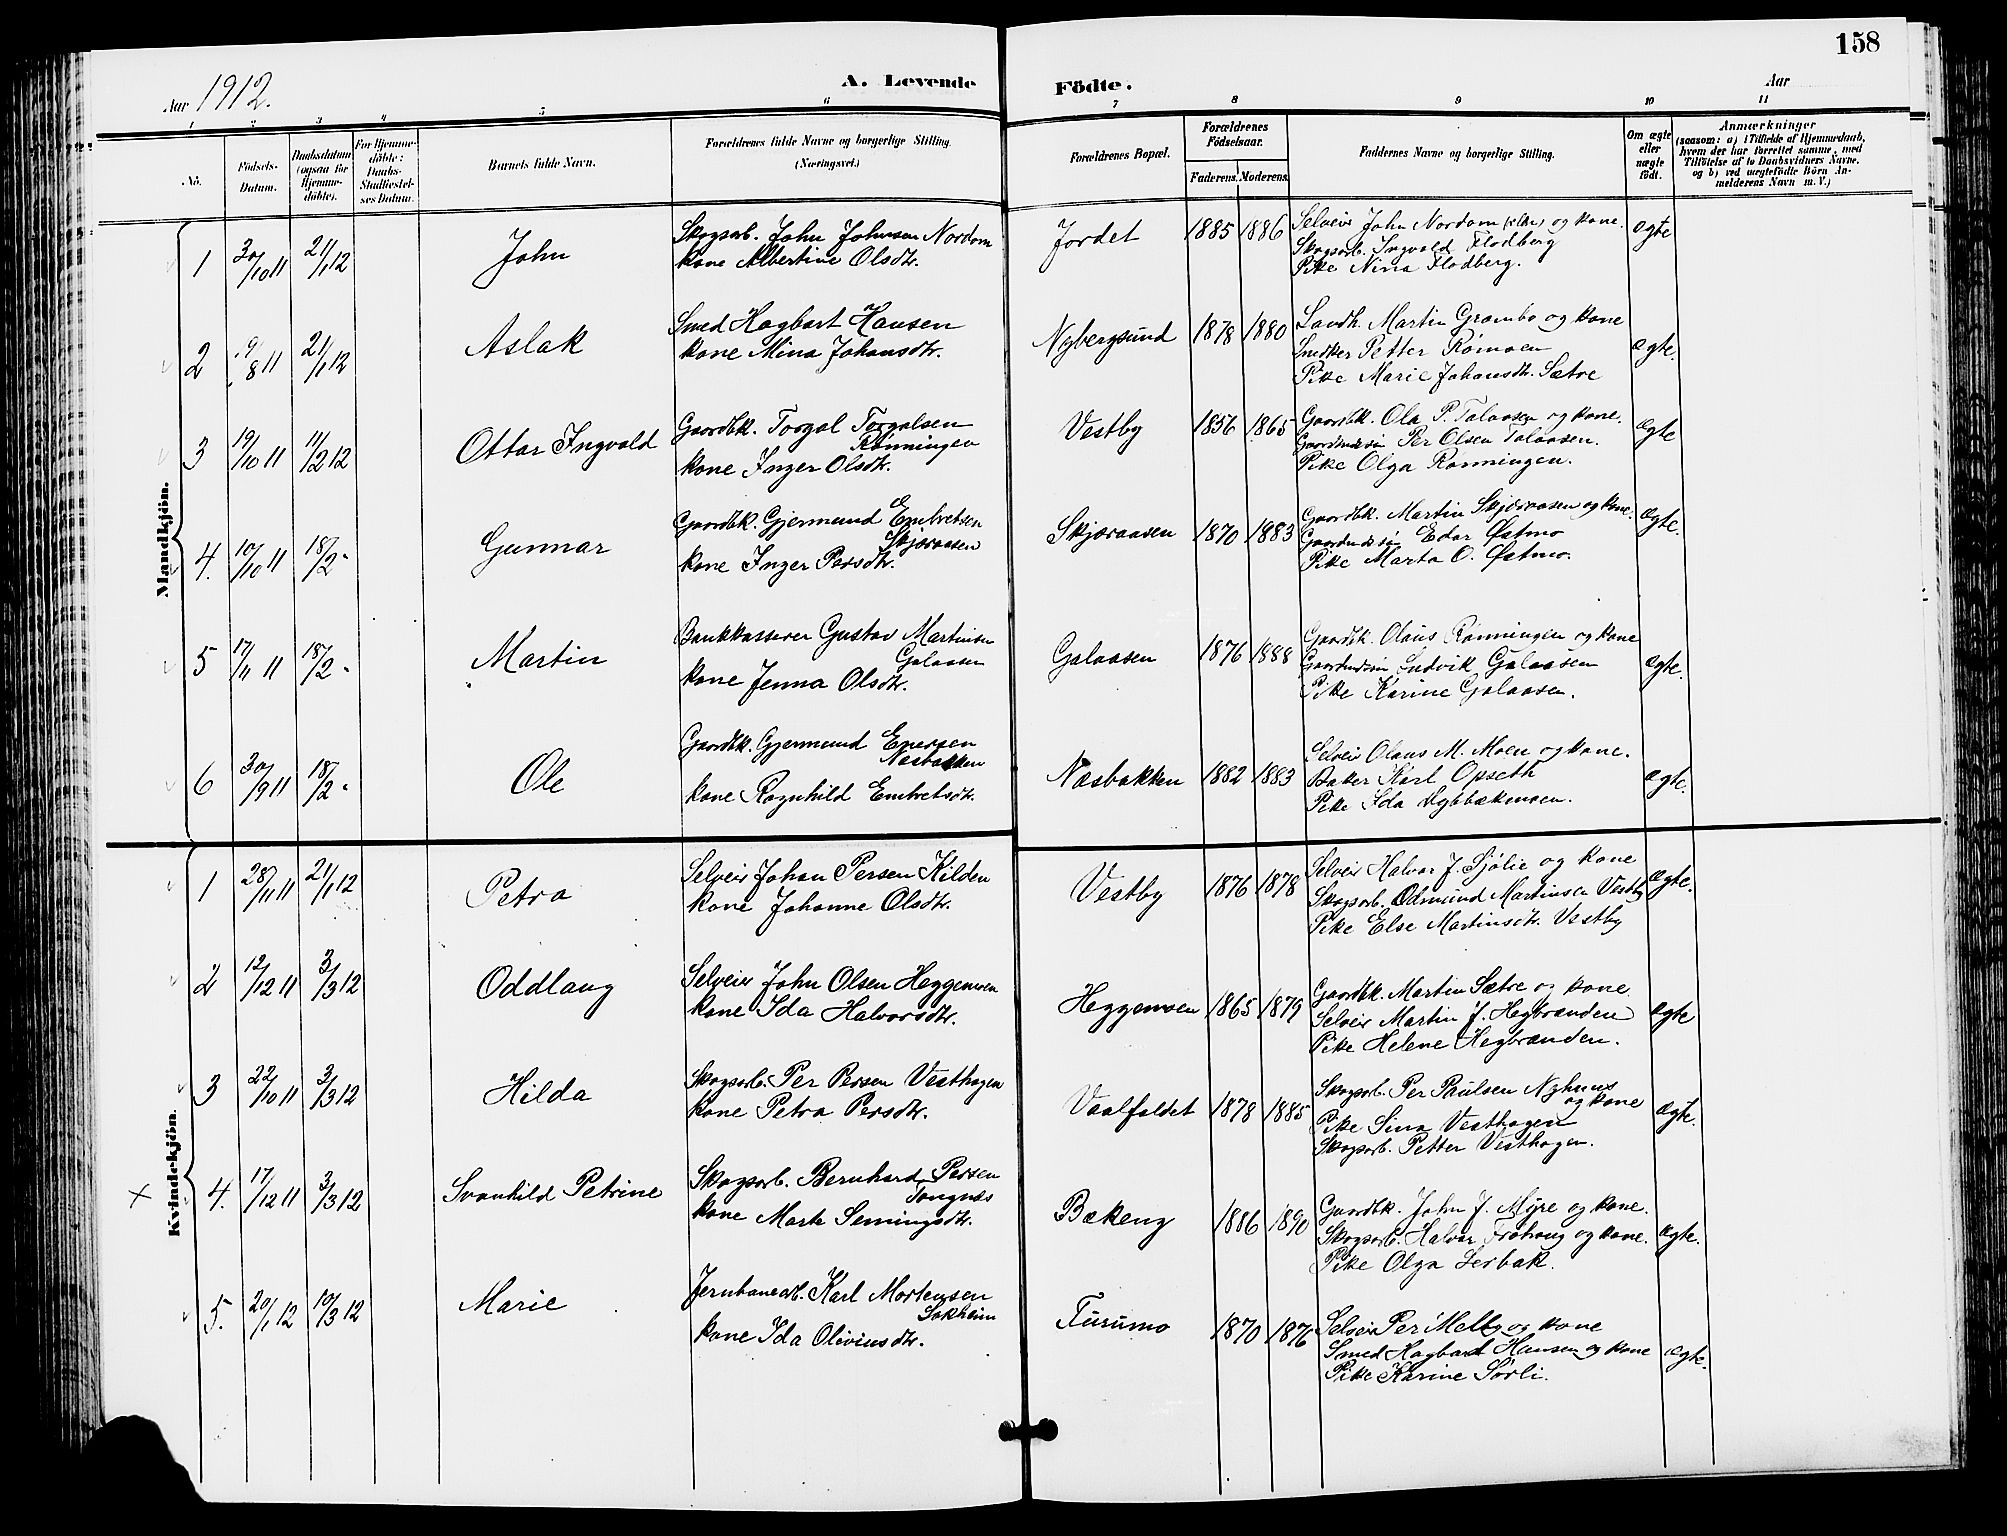 158
Aar 1912.
A. Levende Födte.
Aar
1 2 3 4 5 6 7 8 9 10 11
No.
Födsels-Datum.
Daabsdatum (ogsaa for Hjemme-döbte).
For Hjemme-döbte: Daabs-Stadfæstel-ses Datum.
Barnets fulde Navn.
Forældrenes fulde Navne og borgerlige Stilling. (Næringsvei.)
Forældrenes Bopæl.
Forældrenes Födselsaar.
Faderens. Moderens.
Faddernes Navne og borgerlige Stilling.
Om ægte eller uægte födt.
Anmærkninger
(saasom: a) i Tilfælde af Hjemmedaab,
hvem der har forrettet samme, med
Tilföielse af to Daabsvidners Navne.
og b) ved uægtefödte Börn An-
melderens Navn m. V.)
Mandkjön.
1 30/10 11 21/1 12 John Skogsarb. John Johnsen Nordom
kone Albertine Olsdtr.
Jordet 1885 1886 Selveier John Nordom og kone.
Skogsarb. Ingvald Flodberg
Pike Nina Flodberg.
ægte
2 19/8 11 21/1 12 Aslak Smed Hagbart Hansen
kone Mina Johansdtr.
Nybergsund 1878 1880 Landh. Martin Grambo og kone
Snedker Petter Rømoen
Pike Marie Johansdtr. Sætre
ægte.
3 19/10 11 11/2 12 Ottar Ingvald Gaardbk. Torgal Torgalsen
Rønningen
kone Inger Olsdtr.
Vestby 1856 1865 Gaardbk. Ola P. Galaasen og kone.
Gaardmandssøn Per Olsen Galaasen.
Pike Olga Rønningen.
ægte
4. 10/10 11 18/2 - Gunnar Gaardbk. Gjermund Embretsen
Skjæraasen
kone Inger Persdtr.
Skjæraasen 1870 1883 Gaardbk. Martin Skjæraasen og kone.
Edar Østmo
Pike Marta O. Østmo.
ægte.
5 17/11 11 18/2 - Martin Bankkasserer Gustav Martinsen
Galaasen
kone Jenna Olsdtr.
Galaasen 1876 1888 Gaardbk. Olaus Rønningen og kone
Ludvik Galaasen
Pike Karine Galaasen.
ægte.
6 30/9 11 18/2 - Ole Gaardbk. Gjermund Enersen
Næsbakken
kone Ragnhild Embretsdtr.
Næsbakken 1882 1883 Selveier Olaus M. Moen og kone.
Baker Karl Opseth
Pike Ida
ægte.
Kvindekjön.
1 28/11 11 21/1 12 Petra Selveier Johan Persen Kilden
kone Johanne Olsdtr.
Vestby 1876 1878 Selveier Halvor J. Sjølie og kone
Skogsarb. Odmund Martinsen Vestby
Pike Else Martinsdtr. Vestby
ægte.
2 12/12 11 3/3 12 Oddlaug Selveier John Olsen Heggemoen
kone Ida Halvorsdtr.
Heggemoen 1865 1879 Gaardbk. Martin Sætre og kone
Selveier Martin J. Hegbranden
Pike Helene Hegbranden.
ægte
3 22/10 11 3/3 12 Hilda Skogsarb. Per Persen Vesthagen
kone Petra Persdtr.
Vaalfaldet 1878 1885 Skogsarb. Per Paulsen Nyhuus
og kone
Pike Sina Vesthagen
Skogsarb. Petter Vesthagen.
ægte.
× 4. 17/12 11 3/3 12 Svanhild Petrine Skogsarb. Bernhard Persen
Tangnæs
kone Marte Semingsdtr.
Bækeng 1886 1890 Gaardbk. John J. Myre og kone.
Skogsarb. Halvor Frøhaug og kone.
Pike Olga Lerbak.
ægte.
5. 20/1 12 10/3 12 Marie Jernbanearb. Karl Mortensen
Sokheim
kone Ida Oliviusdtr.
Furumo 1870 1876 Selveier Per Melby og kone
Smed Hagbart Hansen og kone
Pike Karine Sørli.
ægte.